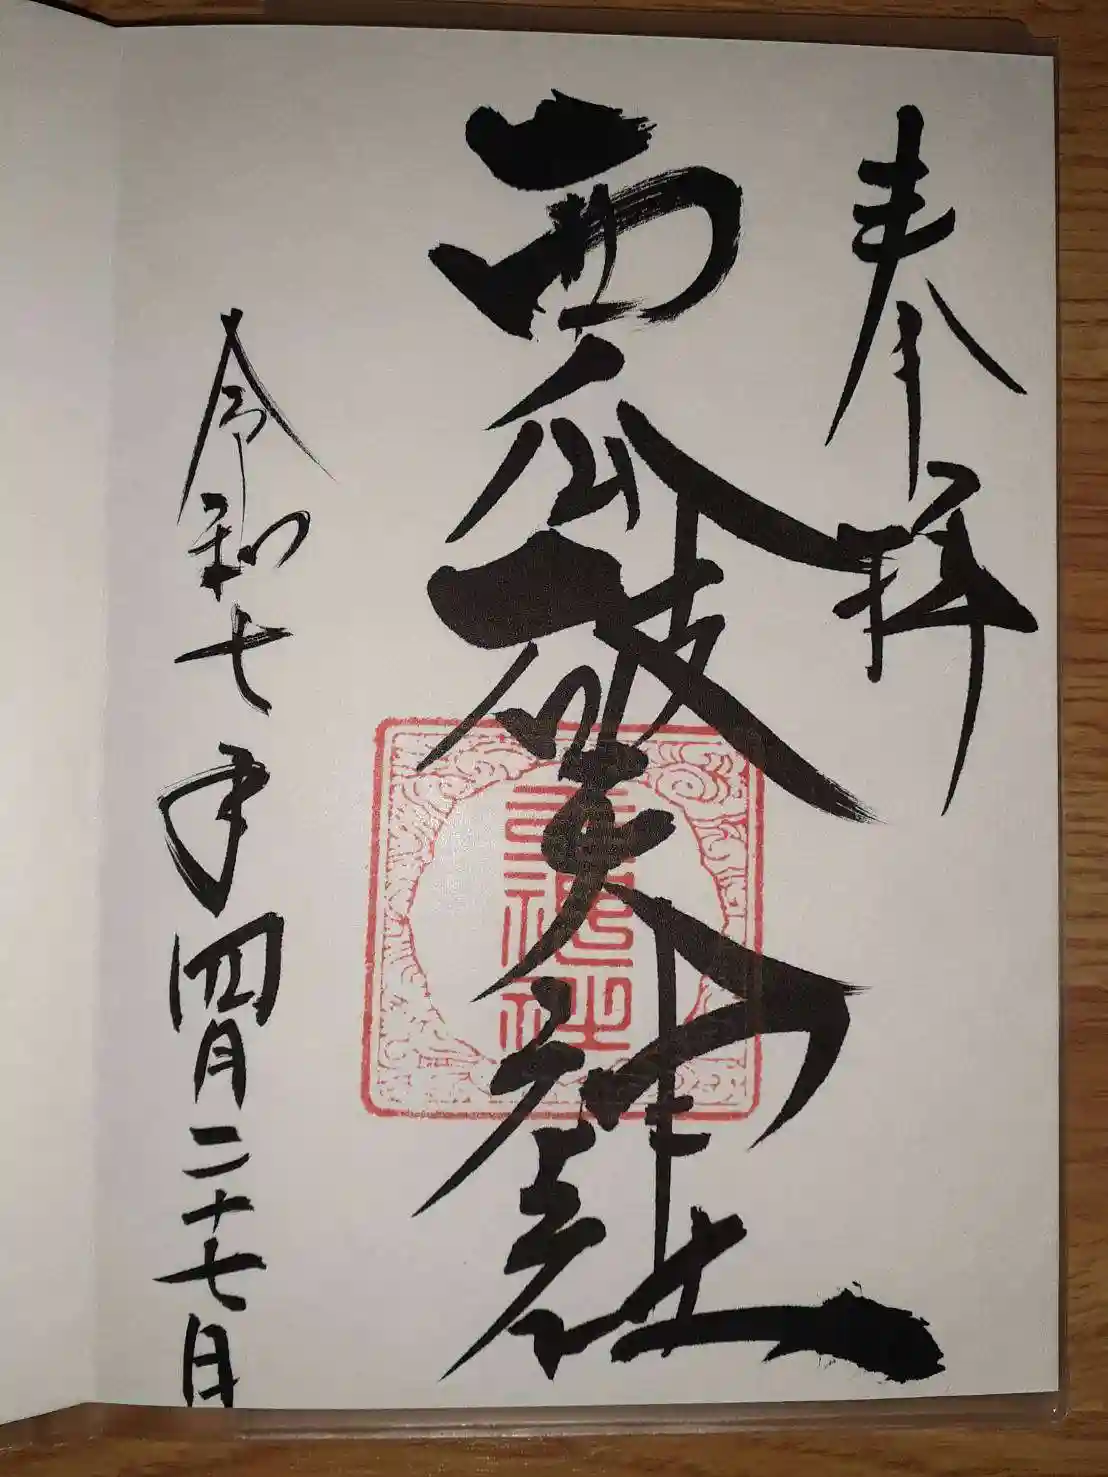 奉拝
西瓜破天神社
天神社
令和七年四月二十七日